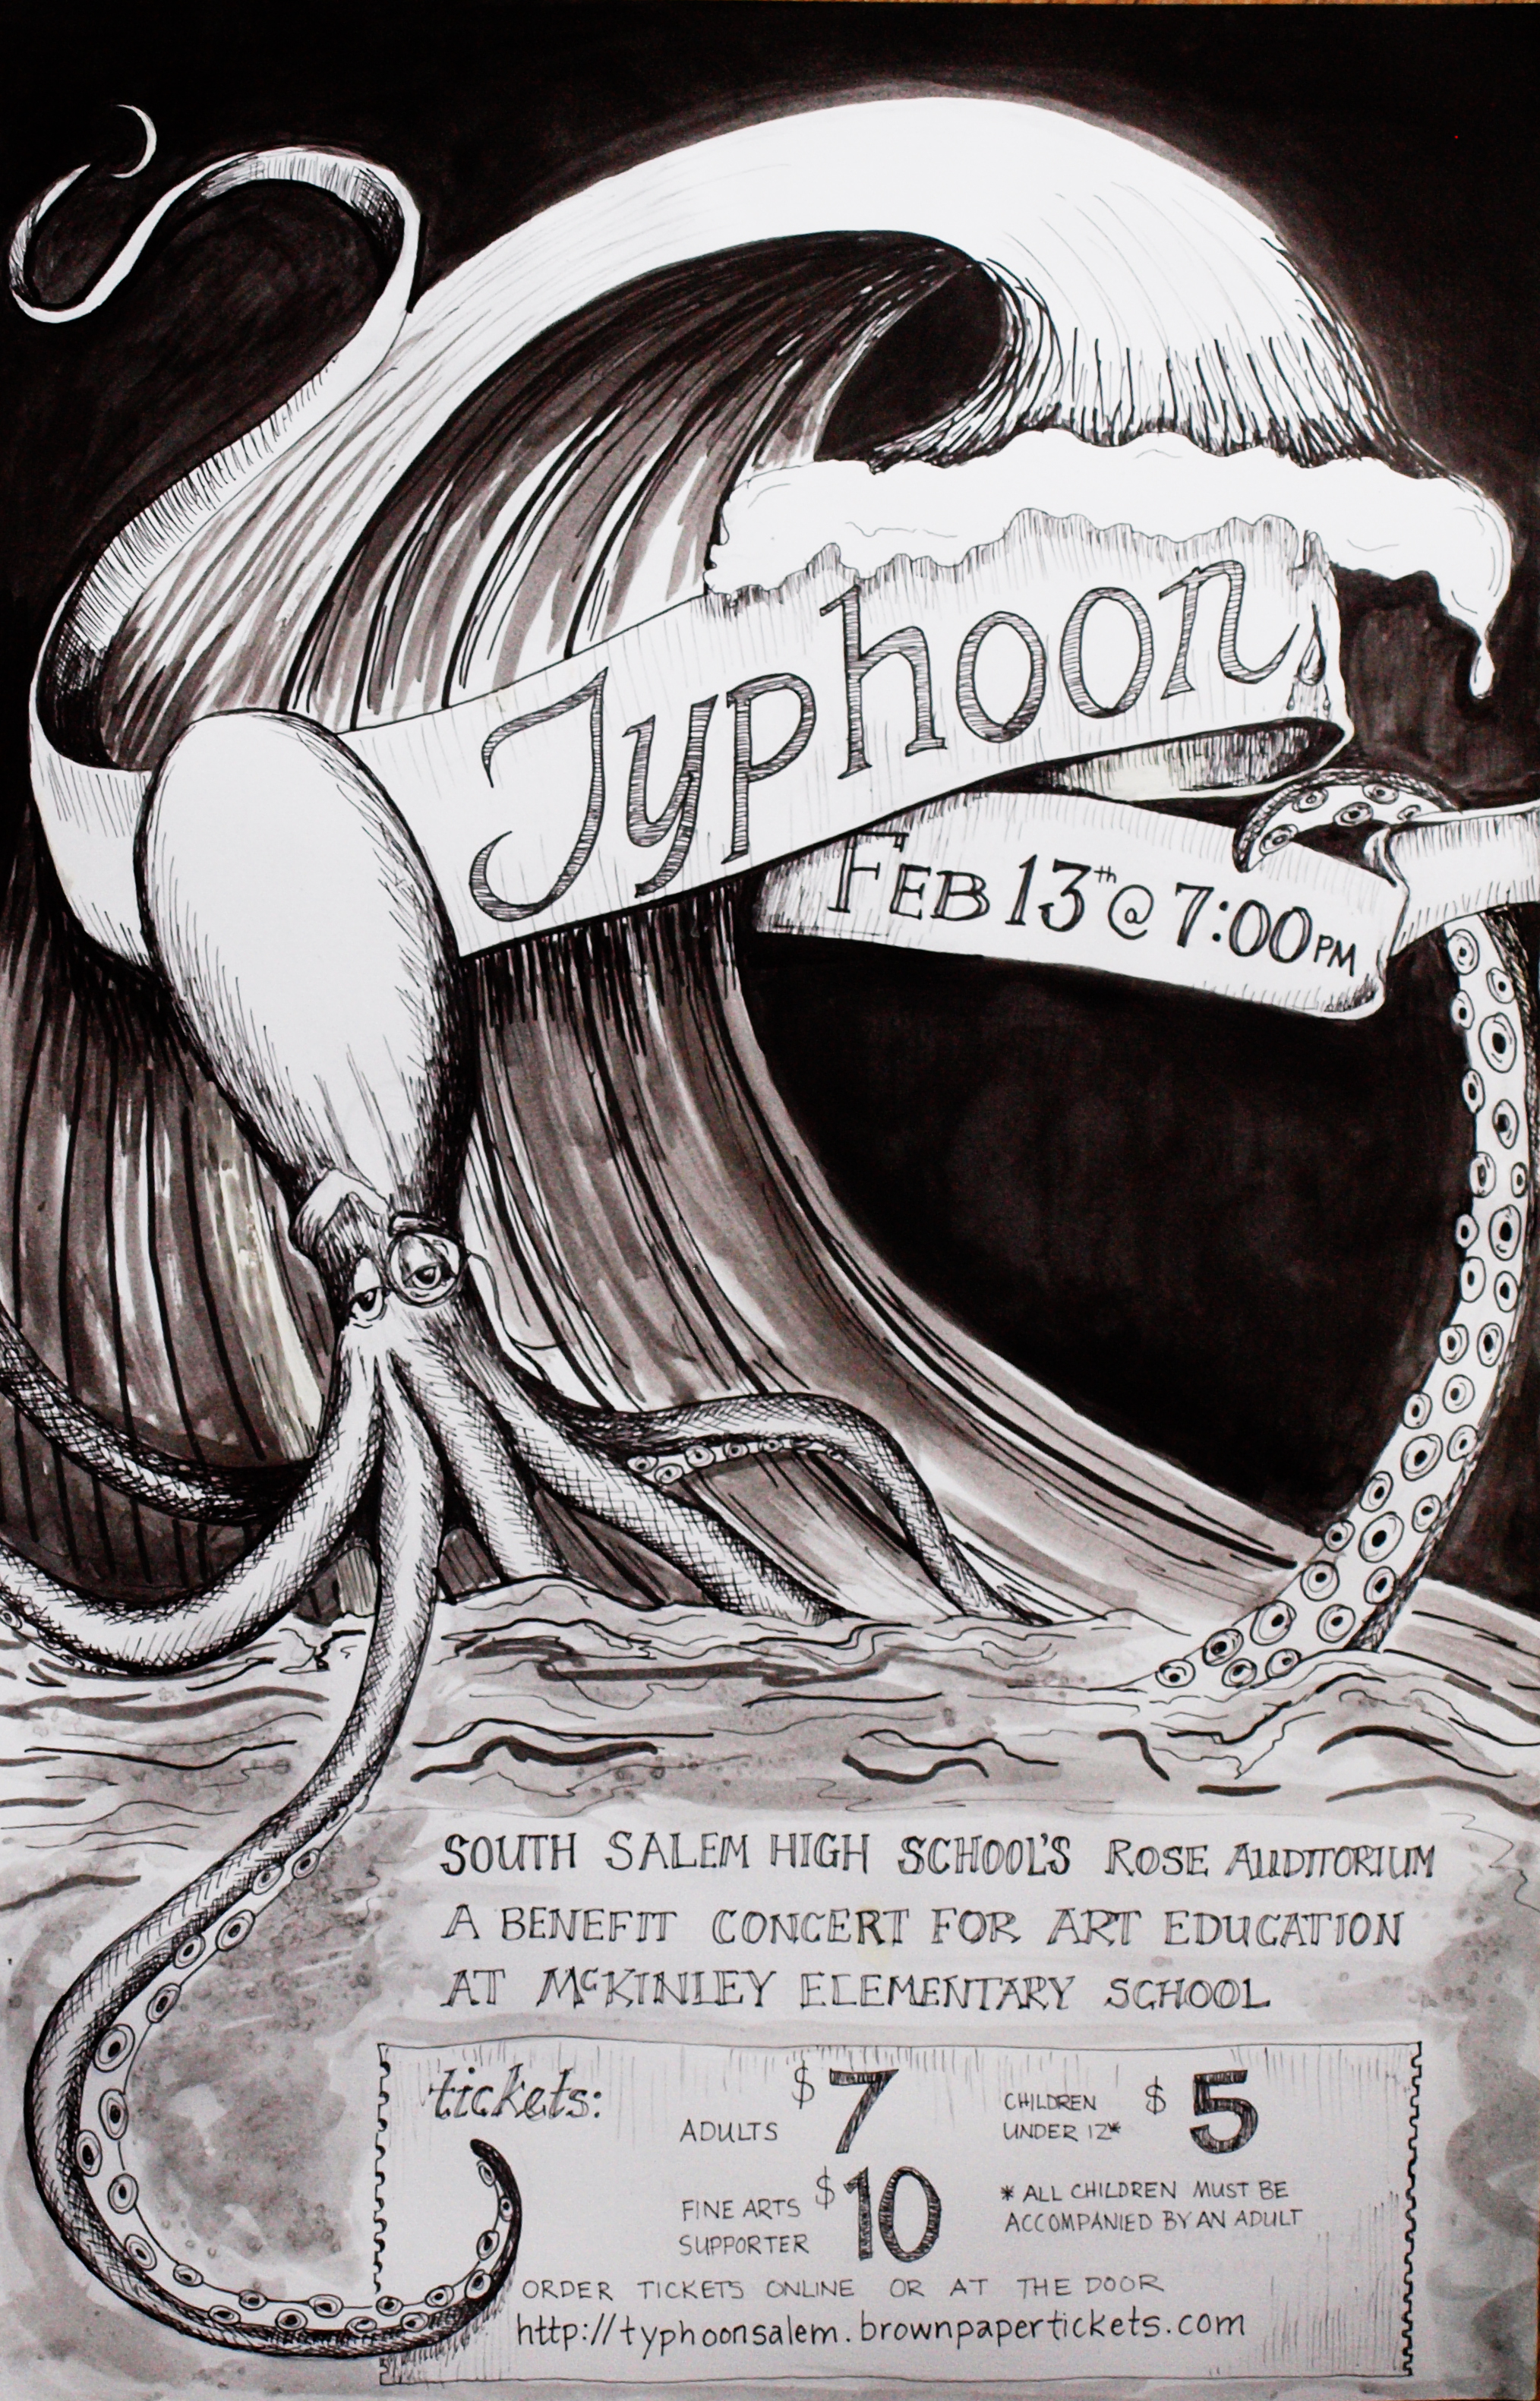 Typhoon
FEB 13th @ 7:00PM
SOUTH SALEM HIGH SCHOOL'S ROSE AUDITORIUM
A BENEFIT CONCERT FOR ART EDUCATION
AT McKINLEY ELEMENTARY SCHOOL
tickets:
ADULTS $7
CHILDREN UNDER 12* $5
FINE ARTS SUPPORTER $10
* ALL CHILDREN MUST BE
ACCOMPANIED BY AN ADULT
ORDER TICKETS ONLINE OR AT THE DOOR
http://typhoonsalem.brownpapertickets.com